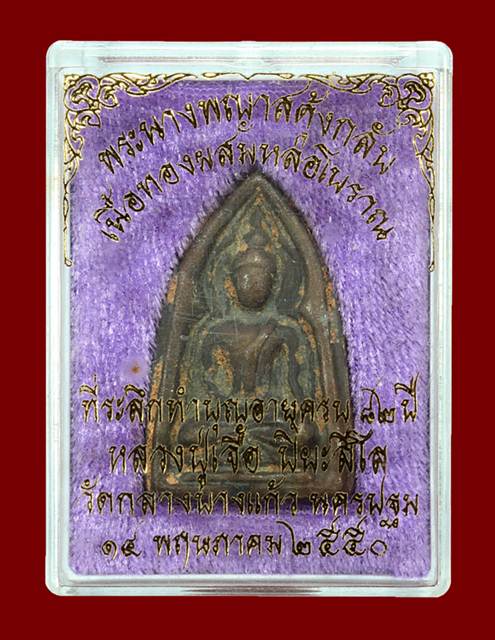 พระนางพญาสตุ้งกลับ
เนื้อทองผสมหล่อโบราณ
ที่ระลึกทำบุญอายุครบ ๘๒ ปี
หลวงปู่เจือ ปิยะสีโล
วัดกลางบางแก้ว นครปฐม
๑๕ พฤษภาคม ๒๕๕๐